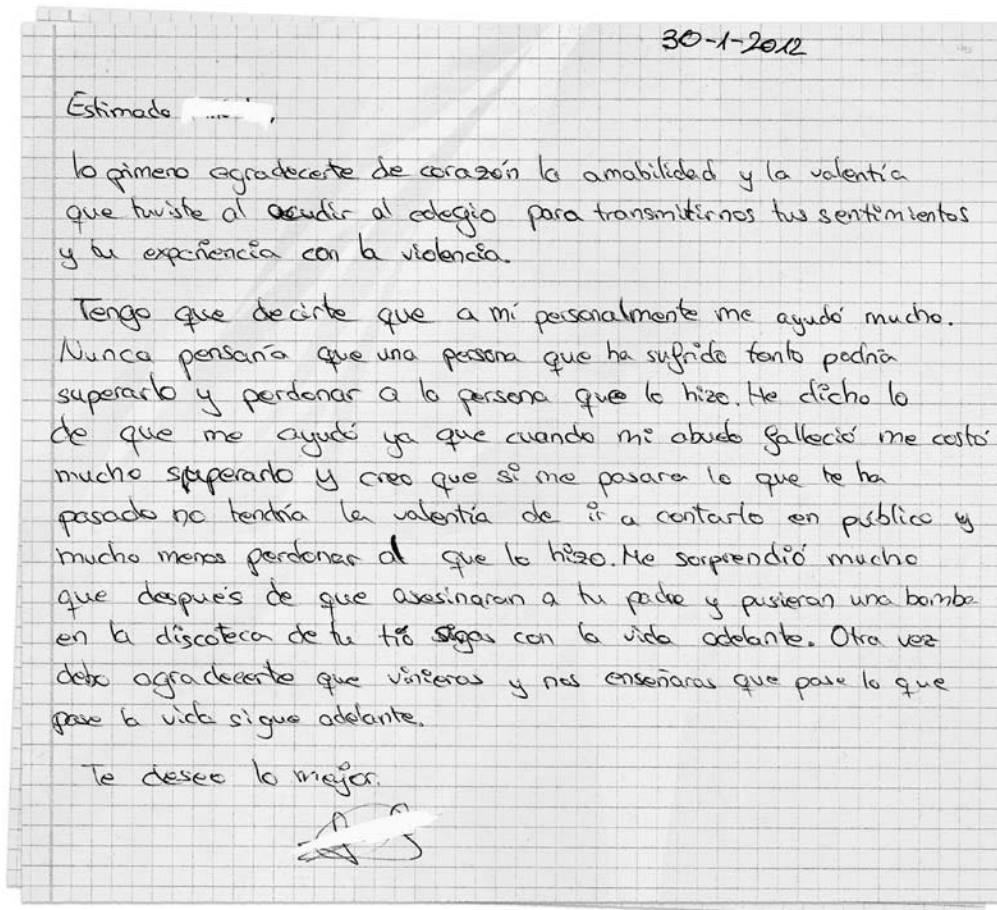 30-1-2012
Estimado ,
lo primero agradecerte de corazón la amabilidad y la valentía
que tuviste al acudir al colegio para transmitirnos tus sentimientos
y tu experiencia con la violencia.
Tengo que decirte que a mi personalmente me ayudó mucho.
Nunca pensaría que una persona que ha sufrido tanto podría
superarlo y perdonar a la persona que lo hizo. He dicho lo
de que me ayudó ya que cuando mi abuelo falleció me costó
mucho superarlo y creo que si me pasara lo que te ha
pasado no tendría la valentía de ir a contarlo en público y
mucho menos perdonar al que lo hizo. Me sorprendió mucho
que después de que asesinaran a tu padre y pusieran una bomba
en la discoteca de tu tío sigas con la vida adelante. Otra vez
debo agradecerte que vinieras y nos enseñaras que pase lo que
pase la vida sigue adelante.
Te deseo lo mejor.